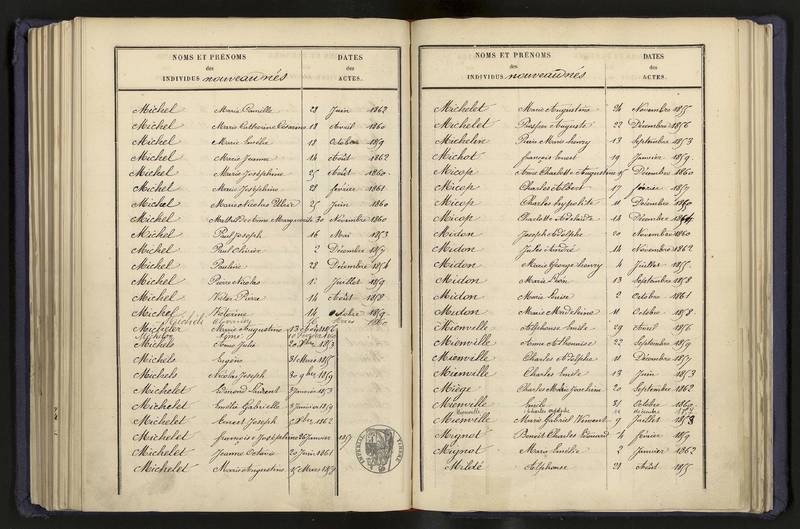 NOMS ET PRÉNOMS
des
INDIVIDUS nouveaunés
DATES
des
ACTES.
Michel Marie Camille 28 Juin 1862
Michel Marie Catherine Césarine 18 Avril 1860
Michel Marie Emélie 18 Octobre 1859
Michel Marie Jeanne 14 Août 1862
Michel Marie Joséphine 25 Août 1860
Michel Marie Joséphine 28 février 1861
Michel Marie Nicolas 25 Juin 1860
Michel Anne Marguerite 30 Novembre 1860
Michel Paul Joseph 16 Mai 1853
Michel Paul Olivier 2 Décembre 1859
Michel Pauline 28 Décembre 1854
Michel Pierre Nicolas 1 Juillet 1859
Michel Victor Pierre 14 Août 1858
Michel Victorine 14 Octobre 1859
Michels 1860
Micheler Marie Augustine 13
Michels Anne Julie 20 1853
Michels Eugène 31 Mars 1855
Michels Nicolas Joseph 30 9bre 1859
Michelet Edmond Laurent 3 Janvier 1853
Michelet Emélie Gabrielle 3 Janvier 1859
Michelet Ernest Joseph 1862
Michelet françois Joséphine 26 Janvier 1859
Michelet Jeanne Octavie 20 Juin 1861
Michelet Marie Augustine 15 Mars
TIMBRE IMPERIAL
NOMS ET PRÉNOMS
des
INDIVIDUS nouveaunés
DATES
des
ACTES.
Michelet Marie Augustine 24 Novembre 1855
Michelet Prosper Auguste 22 Décembre 1856
Michelin Pierre Marie henry 13 Septembre 1853
Michot françois Ernest 19 Janvier 1859
Micop Anne Charlotte Augustine 15 Décembre 1860
Micop Charles Albert 17 février 1857
Micop Charles hypolite 11 Décembre 1850
Micop Charlotte Adélaïde 14 Décembre
Midon Joseph Adolphe 20 Novembre 1860
Midon Jules André 14 Novembre 1862
Midon Marie George henry 4 Juillet 1855
Midon Marie Léon 13 Septembre 1858
Midon Marie Louise 2 Octobre 1861
Midon Marie Madeleine 11 Octobre 1858
Mienville Alphonse Emile 29 Avril 1856
Mienville Anne Athanaise 22 Septembre 1859
Mienville Charles Adolphe 11 Décembre 1857
Mienville Charles Emile 13 Juin 1853
Miège Charles Marie Joachim 20 Septembre 1862
Mienville Emile 31 Octobre 1860
Mienville Charles Adolphe 11 décembre 1857
Mienville Marie Gabriel Vincent 9 Juillet 1853
Mignot Benoit Charles Edouard 4 février 1859
Mignot Marie Emélie 2 Janvier 1862
Mildé Alphonse 28 Août 1855